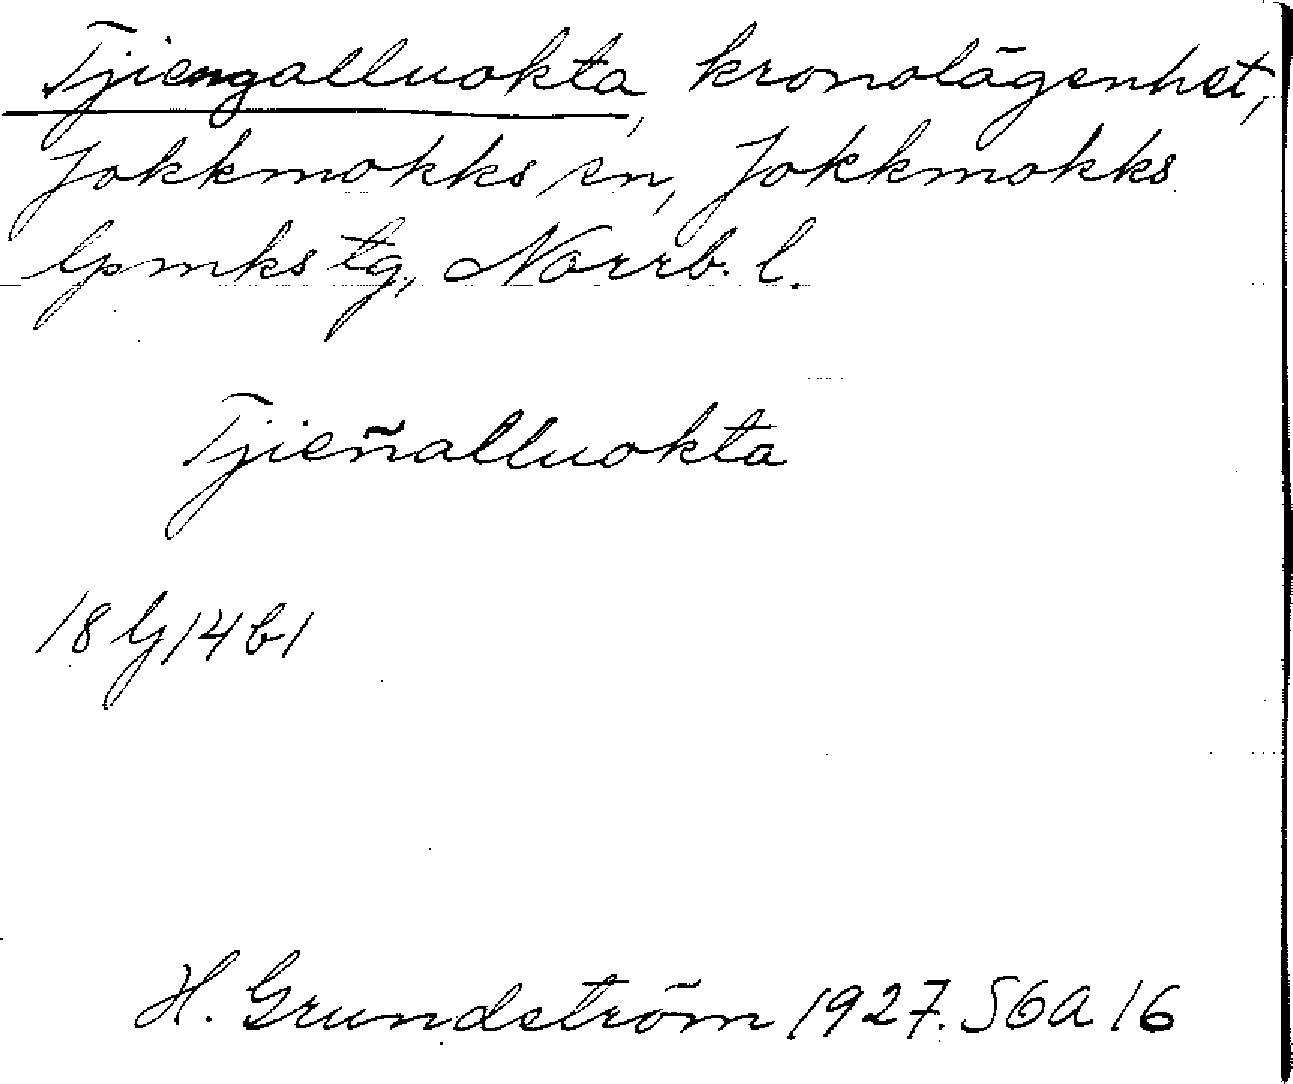 Tjiengalluokta, kronolägenhet,
Jokkmokks sn, Jokkmokks
lpmks tg, Norrb. l.
Tjieñalluokta
18 G 14 b 1
H. Grundström 1927. S6A 16